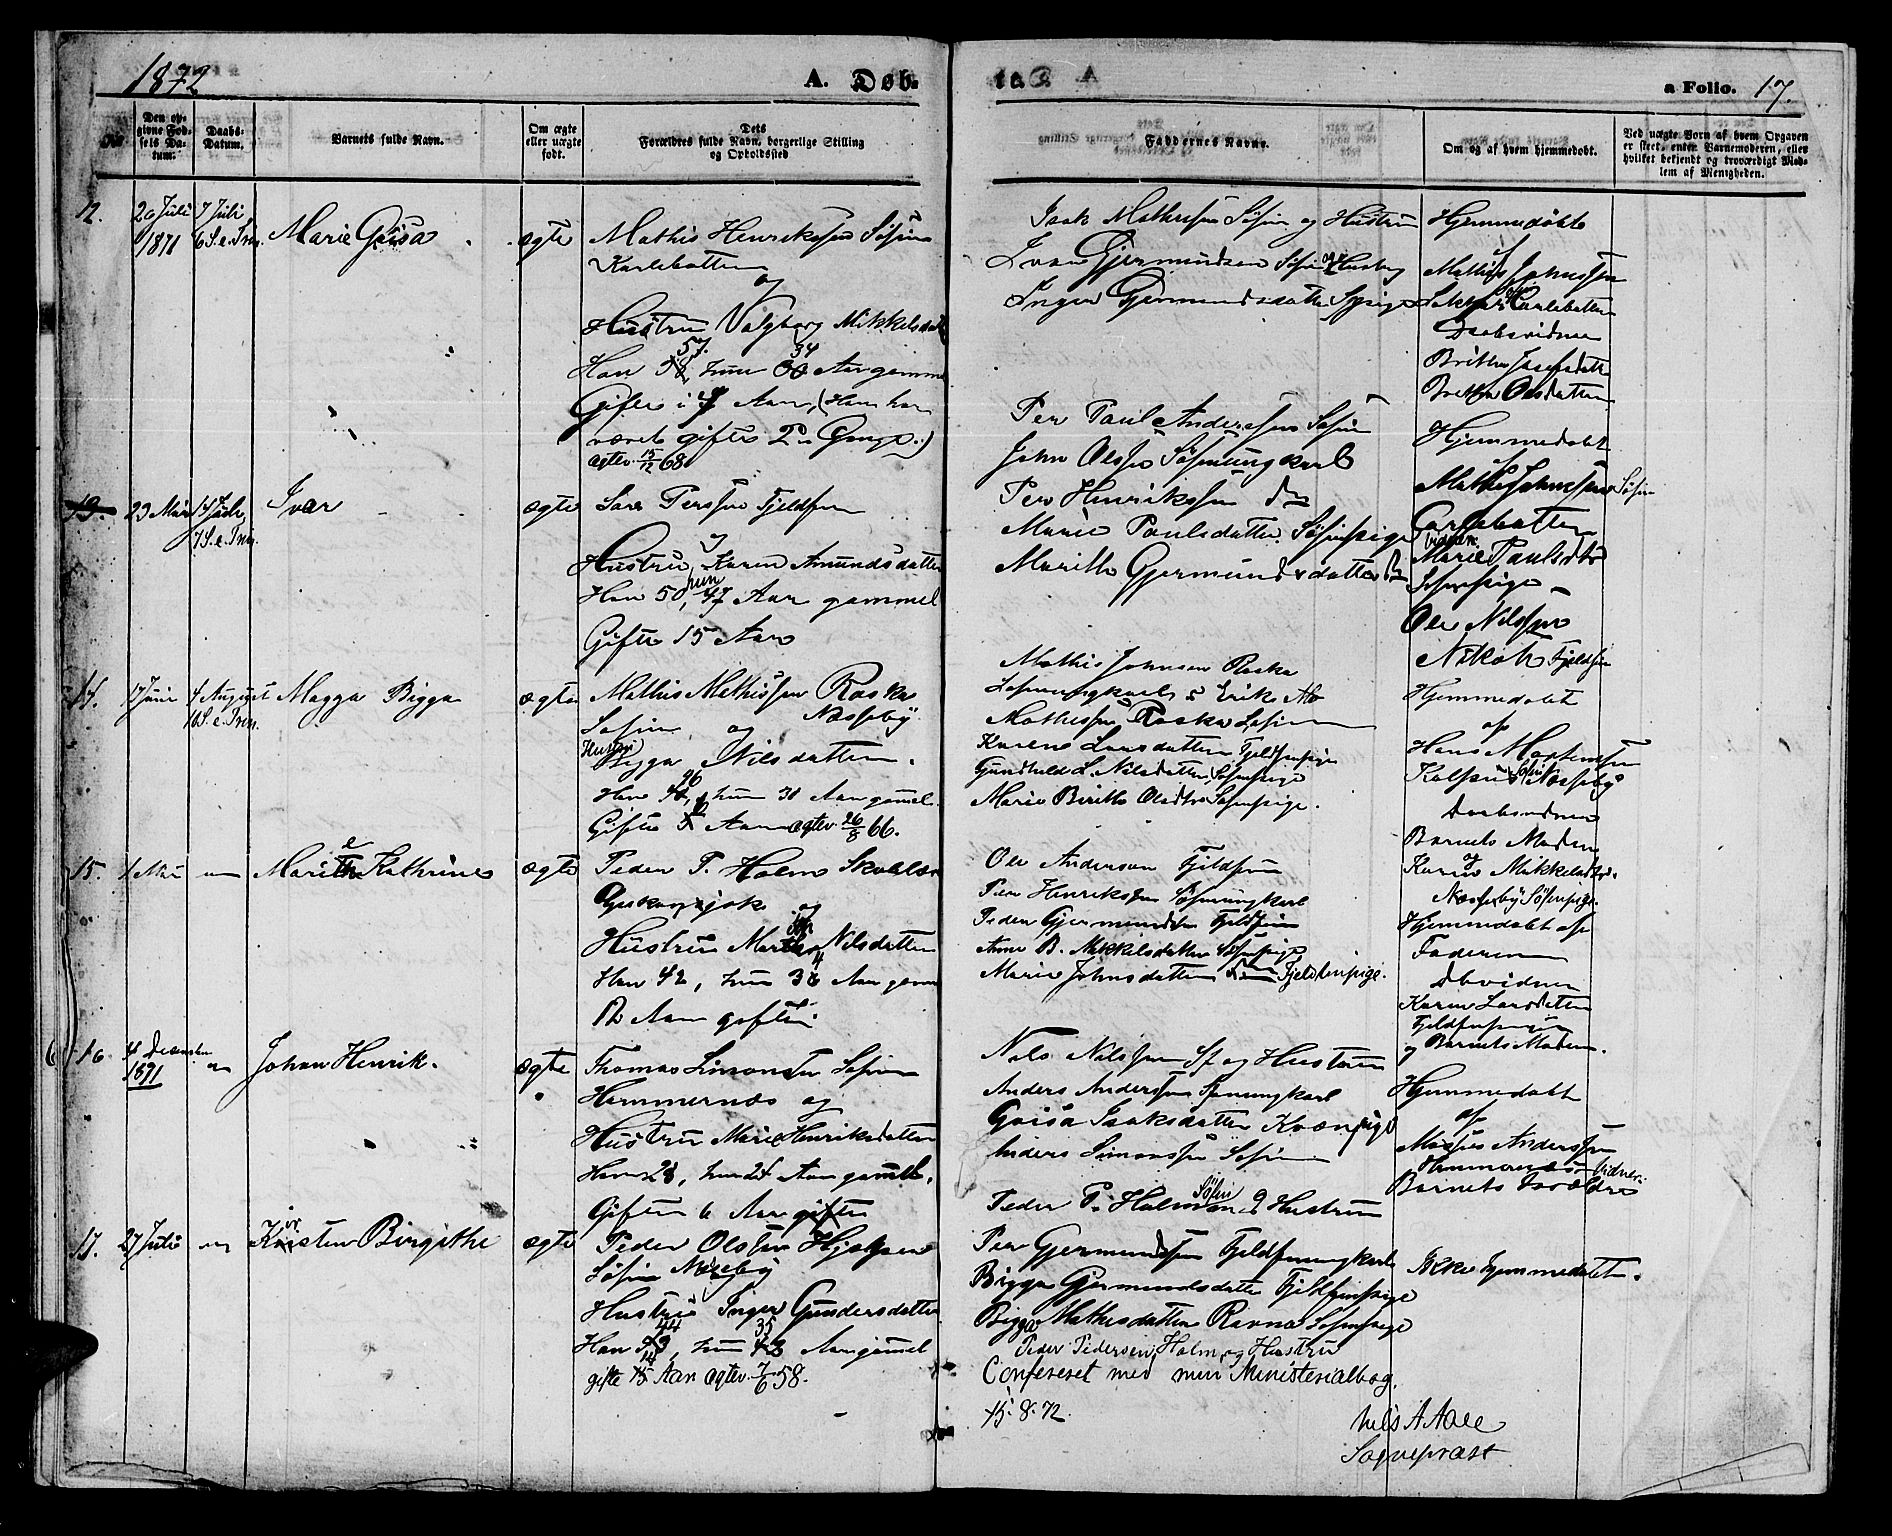 1872
A. Døb-
te.
a Folio. 17.
No.
Den op-
givne Fød-
sels Da-
tum.
Daabs-
Datum.
Barnets fulde Navn.
Om ægte
eller uægte
født.
Dets
Forældres fulde Navn, borgerlige Stilling
og Opholdssted
Faddernes Navne.
Om og af hvem hjemmedøbt.
Ved uægte Børn af hvem Opgaven
er skeet, enten Barnemoderen, eller
hvilket bekjendt og troværdigt Med-
lem af Menigheden.
12.
20 Juli
1871
7 Juli
6 S. e. Trin.
Marie Gaisa
ægte
Mathis Henrikssen Søfin
Karlebotten
og
Hustru Valgborg Mikkelsdatt
57. 34
Han, hun Aar gamme
Gifte i Aar, (Han har
været gifte 2 Gange.)
Agtev. 15/12 68
Isak Mathissen Søfin og Hustru
Ivar Gjermundsen Søfin og Hustru
Inger Gjermundsdatter Spige
Hjemmedøbt
af
Mathis Johnssen
Søfin Carlsbotten
Daabsvidner
Brithe Josefsdatt
Brithe Olsdatter
13.
23 Mai
14 Juli
7 S. e. Trin.
Ivar
ægte
Lars Perssen Fjeldfin
Hustru Karen Amundsdatter
Han 50, hun 47 Aar gammel
Gifte 15 Aar
Per Paul Anderssen Søfin
John Olsen Søfinungkarl
Per Henrikssen do
Marie Paulsdatter Søfinpige
Marithe Gjermundsdatter do
Hjemmedøbt
af
Mathis Johnssen Søfin
Carlsbotten
Vidner
Marie Paulsdtr
Søfinpige
Ole Nilssen
Fjeldfin
14.
17 Juni
4 August
10 S. e. Trin.
Magga Bigga
ægte
Mathis Mathissen Raska
Søfin og Næsseby
Hustru
Bigga Nilsdatter.
Han 26, hun 30 Aar gammel.
Gifte Aar Agtev. 26/8 66.
Mathis Johnsen Raska
Søfinungkarl Erik
Mathissen Raska Søfin
Karene Larsdatter Fjeldfinpige
Gundhild L. Nilsdatter Søfinpige
Marie Birithe Olsdtr Søfinpige.
Hjemmedøbt
af
Hans Mortensen
Søfin Næsseby
Daabsvidner
Barnets Moder
og
Karen Mikkelsdtr.
Næsseby Søfinpige.
15.
1 Mai
Marith Kathrine
ægte
Peder P. Holm Skolelær
og
Hustru Marthe Nilsdatter
Han 42, hun 34 Aar gamm
12 Aar gifte.
Ole Andersen Fjeldfin
Per Henrikssen Søfinungkarl
Peder Gjermundsen Fjeldfin
Anne B. Mikkelsdatter Søfinpige
Marie Johnsdatter Fjeldfinpige.
Hjemmedøbt af
Faderen
Dbvidner
Karen Larsdatter
Fjeldfinpige
og Barnets Moder.
16.
4 December
1871
Johan Henrik.
ægte
Thomas Simonsen Søfin
Hammernæs og
Hustru Marie Henriksdatter
Han 28, hun 24 Aar gammel.
Gifte 6 Aar gifte
Nils Nilssen Sf og Hustru
Anders Anderssen Søfinungkarl
Gaisa Isaksdatter Kvænpige
Anders Simonssen Søfin
Peder P. Holm Søfin og Hustru
Hjemmedøbt
af
Mathis Anderssen
Hammernæs Vidner.
Barnets Forældre
17.
27 Juli
Kirsten Birgithe
ægte
Peder Olssen
Søfin Næseby
Hustru Inger Gundersdatter
44 35
Han, hun Aar gammel
gifte 14 Aar Agtev. 7/6 58.
Per Gjermundssen Fjeldfinungkarl
Bigga Gjermundsdatter Fjeldfinpige
Bigga Mathisdatter Ravna Søfinpige
Peder Pedersen Holm og Hustru
Ikke hjemmedøbt.
Confereret med min Ministerialbog.
15.8.72.
Nils A Aall
Sognepræst